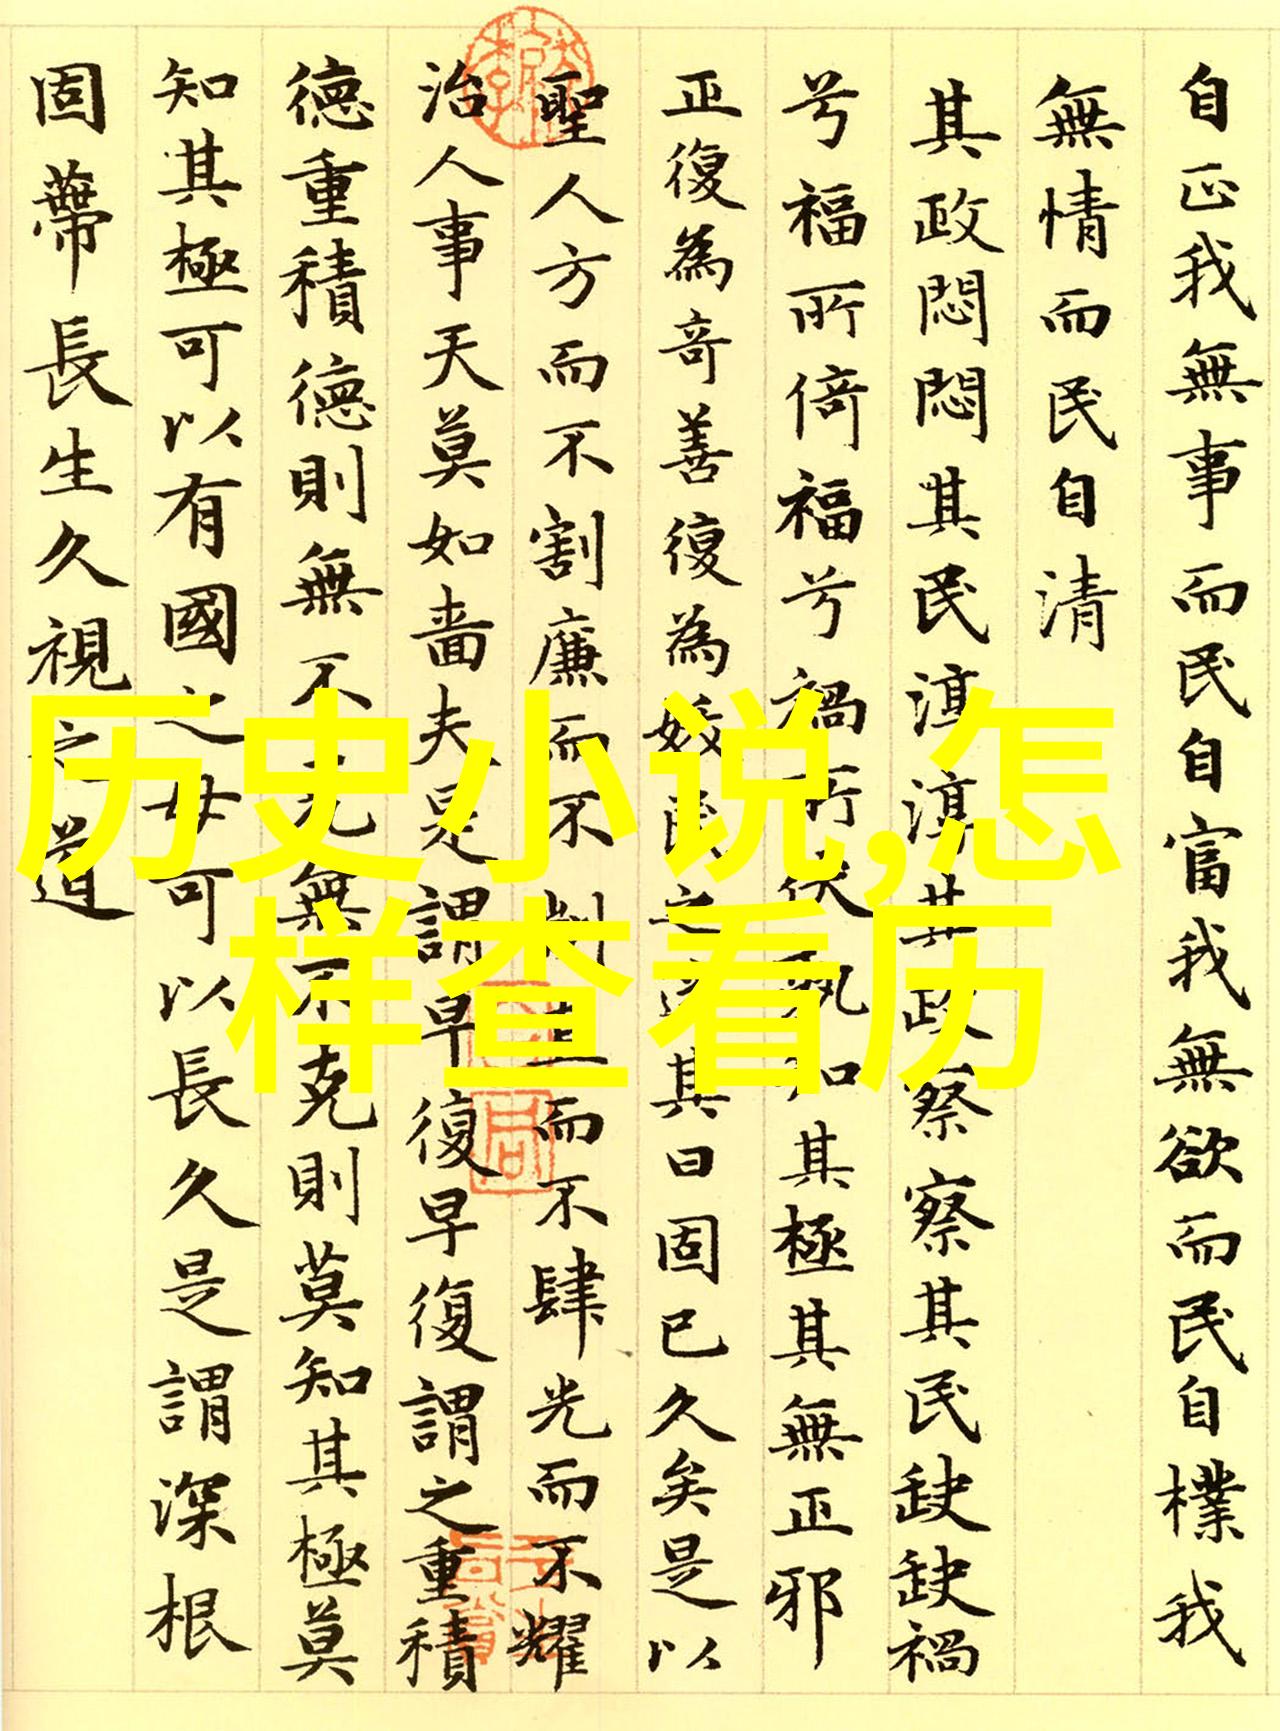 自正我無事而民自富我無欲而民自樸我
無情而民自清
其政悶悶其民淳淳其政察察其民缺缺禍
兮福所倚福兮禍所伏孰知其極其無正邪
正復為奇善復為妖民之迷其日固已久矣是以
聖人方而不割廉而不劌直而不肆光而不耀
治人事天莫如嗇夫是謂早復早復謂之重積
德重積德則無不克無不克則莫知其極莫
知其極可以有國之母可以長久是謂深根
固蔕長生久視之道
历史小说,怎
样查看历